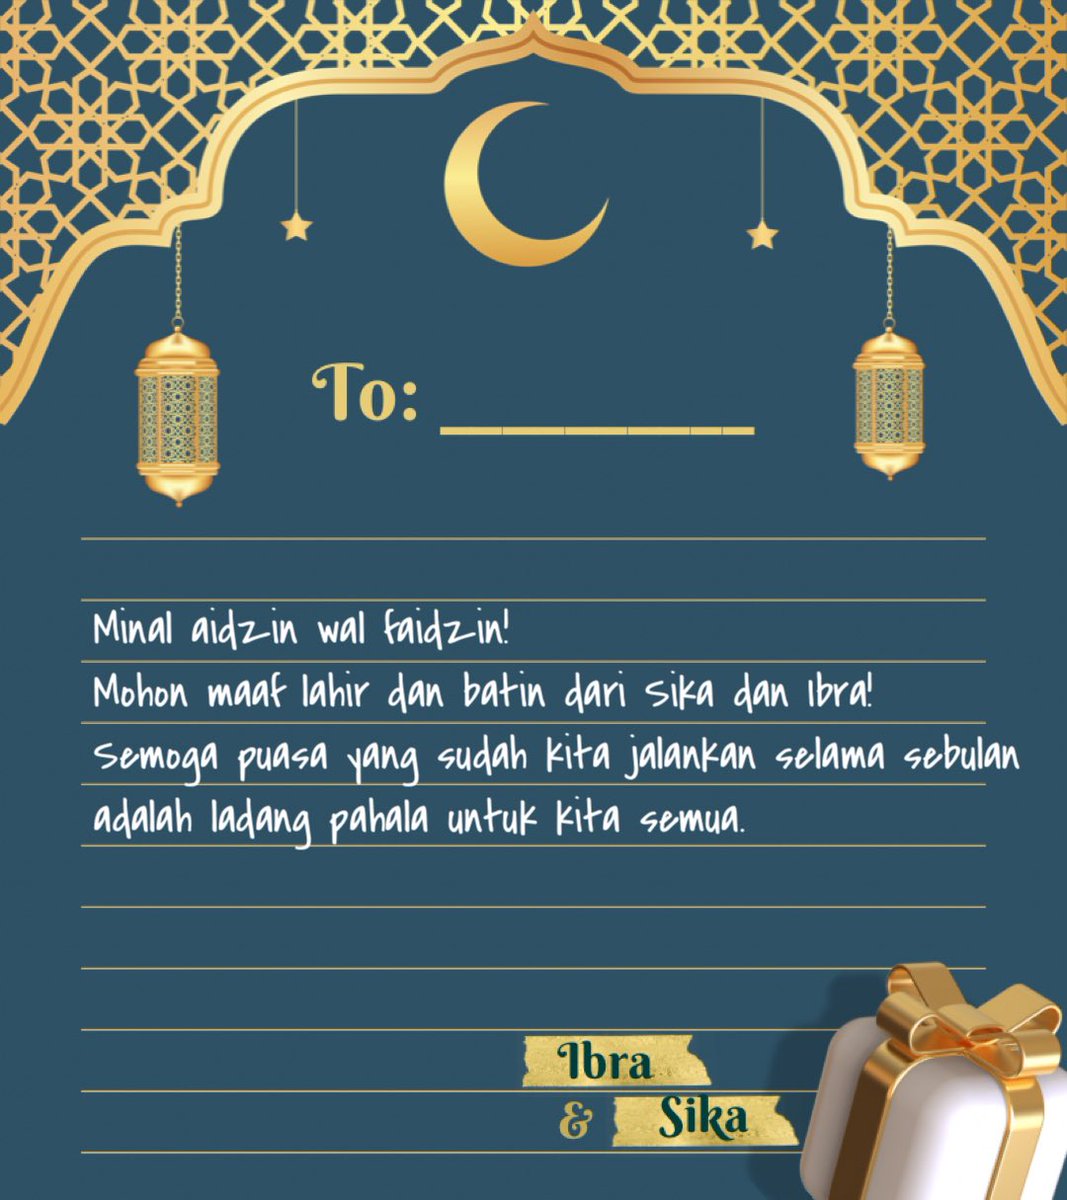 To: ______
Minal aidzin wal faidzin!
Mohon maaf lahir dan batin dari Sika dan Ibra!
Semoga puasa yang sudah kita jalankan selama sebulan
adalah ladang pahala untuk kita semua.
Ibra
& Sika